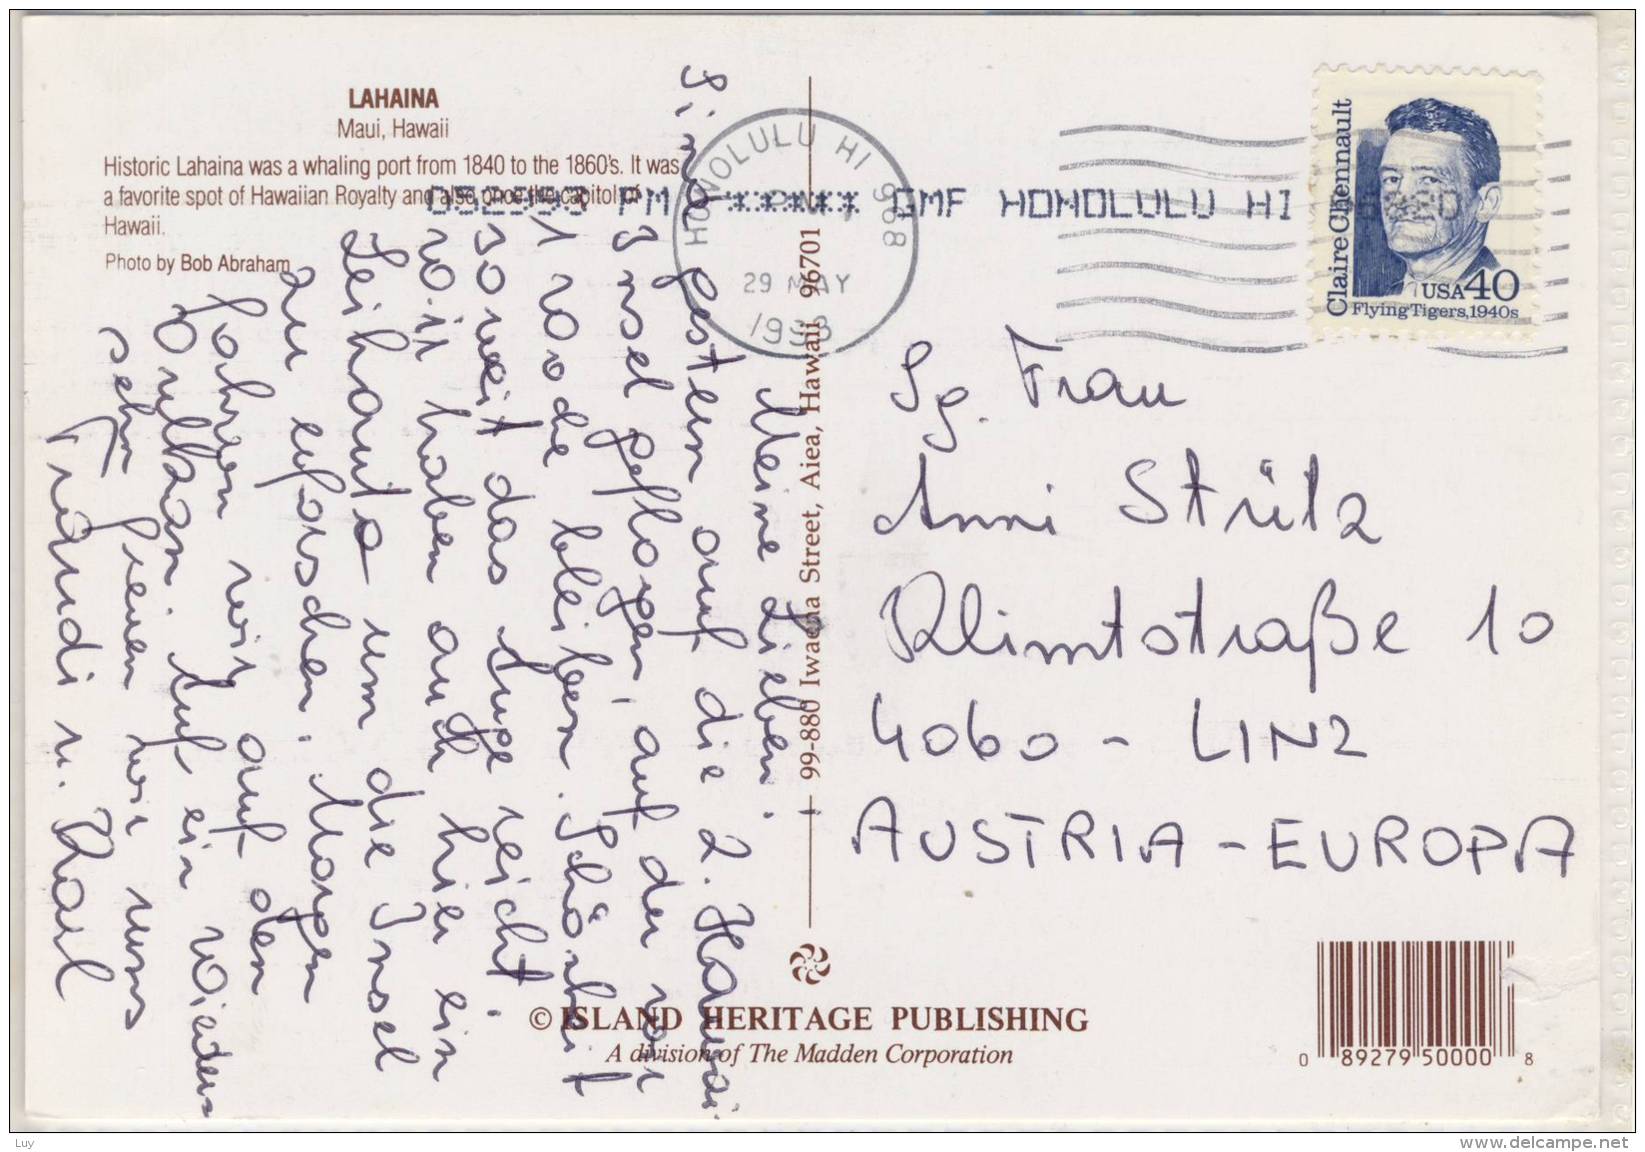 LAHAINA
Maui, Hawaii
Historic Lahaina was a whaling port from 1840 to the 1860's. It was
a favorite spot of Hawaiian Royalty and also once the capitol of
Hawaii.
Photo by Bob Abraham
Meine Lieben.
Sind gestern auf die 2. Hawaii
Insel geflogen, auf der wir
1 Woche bleiben. Schönheit
soweit das Auge reicht.
Wir haben auch hier ein
Leihauto um die Insel
zu erforschen. Morgen
fahren wir auf den
Vulkan. Auf ein Wiedersehen
sehn freuen wir uns
Traudi u. Karl
HONOLULU HI 968
PM
29 MAY
1993
PM ****** GMF HONOLULU HI
Claire Chennault
USA 40
Flying Tigers, 1940s
Sg. Frau
Anni Stütz
Klimtstraße 10
4060 - LINZ
AUSTRIA - EUROPA
99-880 Iwaena Street, Aiea, Hawaii 96701
© ISLAND HERITAGE PUBLISHING
A division of The Madden Corporation
0 89279 50000 8
Luy
www.delcampe.net